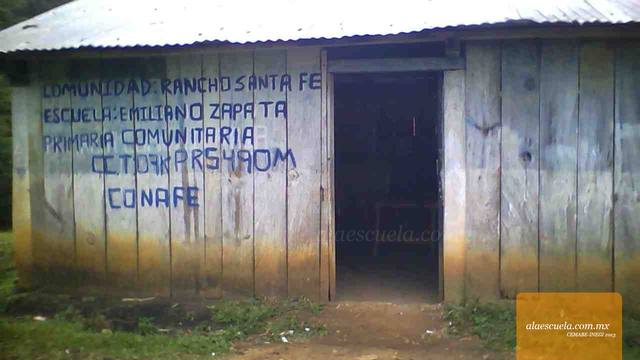 COMUNIDAD: RANCHO SANTA FE
ESCUELA: EMILIANO ZAPATA
PRIMARIA COMUNITARIA
CCT07KPR5490M
CONAFE
alaescuela.com.mx
alaescuela.com.mx
CEMABE-INEGI 2013